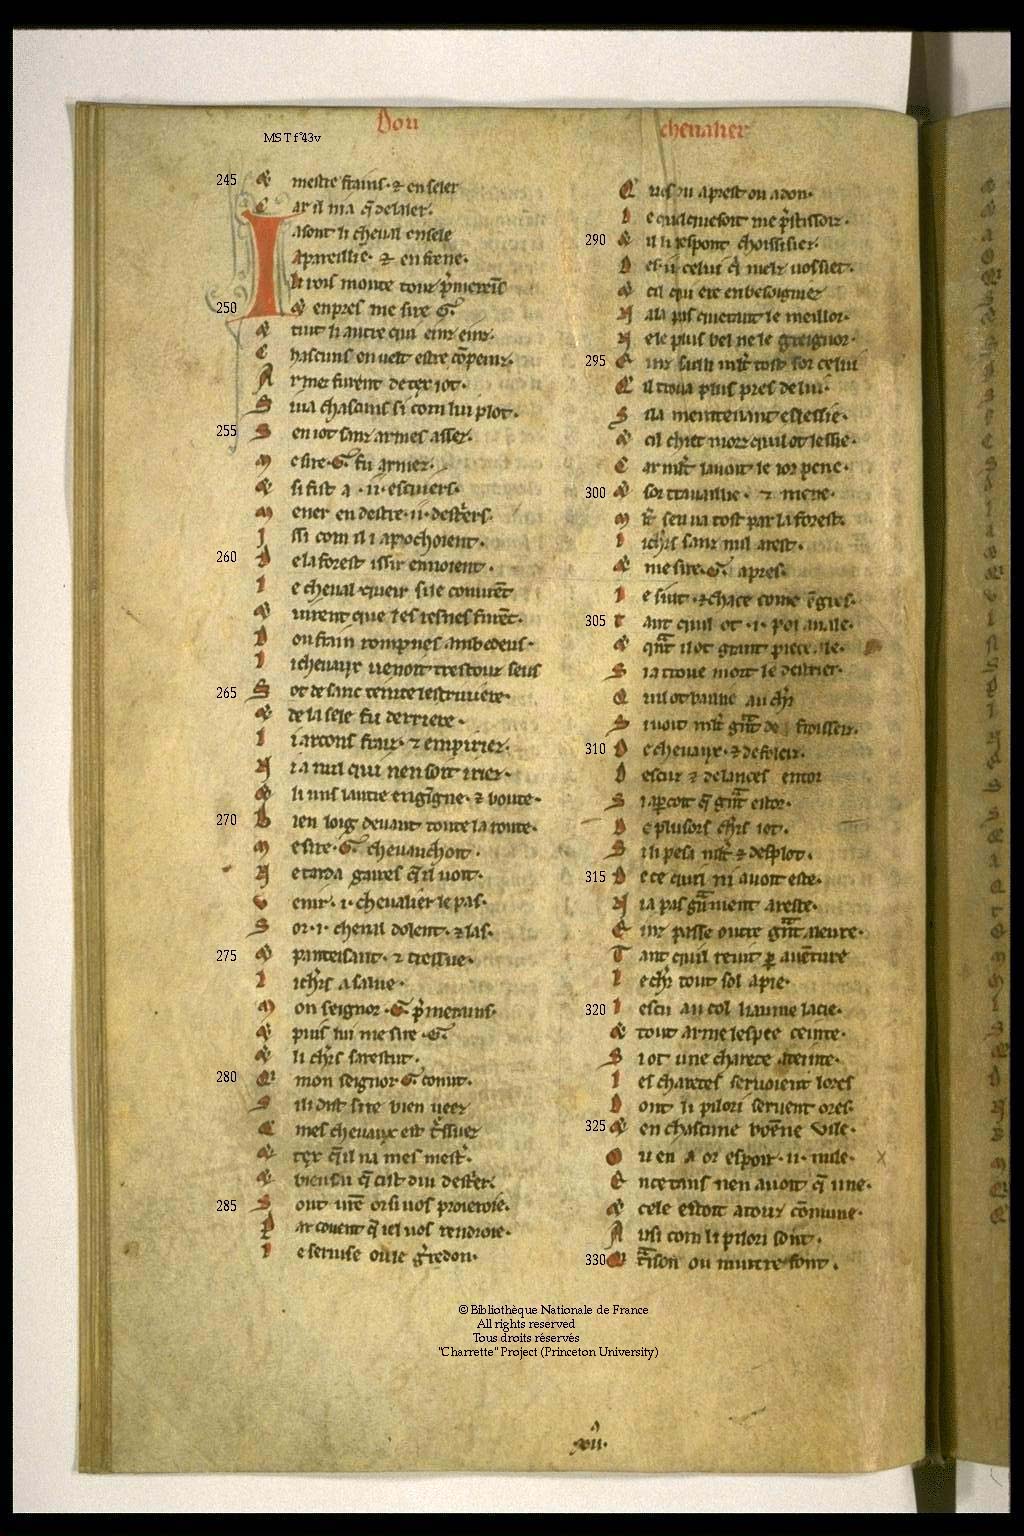 Dou chevalier
MS T f°43v
245 & mestre frains · & enseler
C ar il ni a q̃ delaier.
I a sont li cheval ensele
Apareillie · & enfrene.
li rois monte tout p̃merei̅s
250 & enpres me sire ·G·
& tuit li autre qui einz einz.
C hascuns en uelt estre co̅peinz.
A rme furent de tex i ot.
S anz armes
255 S en i ot sanz armes assez.
M esire ·G· fu armez.
& si fist a ·ii· escuiers.
M ener en destre ·ii· dest̃ers.
I ssi com il i aprochoient.
260 D e la forest issir en uoient.
L e cheval queu si le conurẽt
& uirent que les resnes furẽt.
D ou frain rompues ambedeus.
L i chevaux uenoit trestouz seus
265 S ot de sanc teinte lestriuiere.
& de la sele fu derriere.
L i arcons fraiz · & empiriez.
N i a nul qui nen soit iriez.
& li uns lautre en gigne · & boute.
270 B ien loig devant toute la route.
M esire ·G· chevauchoit.
N e tarda gaires q̃ il uoit.
V enir ·i· chevalier le pas.
S or ·i· cheval dolent · & las.
275 & panteisant · & tressue.
L i ch̃rs a salue.
M on seignor ·G· p̃merains.
& puis lui me sire ·G·
& li ch̃rs sarestut.
280 Q̃ mon seignor ·G· conut.
S i li dist sire bien ueez
C mes chevaux est t̃ssuez
& tex q̃ il na mes mest̃.
& bien sai q̃ cist dui dest̃er.
285 S ont vr̃e or si uos proieroie.
P ar couent q̃ iel uos rendroie.
L e seruise ou le g̃redon.
C
L e quel que soit me p̃stissoiz.
290 & il li respont choisissiez.
D es ii celui q̃ mielz uossiet.
& cil qui ere en besoigniez
N ala pas querant le meillor.
N e le plus bel ne le greignor.
295 E inz sailli mlt̃ tost sor celui
C il troua plus pres de lui.
S i la meintenant eslessie.
& cil chiet morz quil ot lessie.
C ar mlt̃ lauoit le ior pene.
300 & sor trauaillie · & mene.
sen ua tost par la forest.
L i ch̃rs sanz nul arest.
& me sire ·G· apres.
L e siut · & chace come e̅gres.
305 T ant quil ot ·i· poi auale.
& qñt il ot grant piece ale.
S i a troue mort le destrier.
Q uil ot baillie au ch̃r
S i uoit mlt̃ gñt de froisseiz.
310 D e chevaux · & defoleiz.
D escuz & de lances entor
S i aparcoit q̃ gñt estor.
D e plusors ch̃rs i ot.
S i li pesa mlt̃ & desplot.
315 D e ce quil ni auoit este.
N i a pas grãment areste.
E inz passe outre gñt aleure.
T ant quil reuit p̲ auẽture
L e ch̃r tout sol a pie.
320 L escu au col liaume lacie.
& tout arme lespee ceinte.
S i ot une charete ateinte.
L es charetes seruoient lores
D ont li pilori seruent ores.
325 & en chascune bo̅ne vile.
O u en a or espoir ·ii· mile.
E nce tans nen auoit q̃ une.
& cele estoit a touz co̅mune.
A usi com li pilori sont.
330 Q̃ t̃ison ou murtre font.
©Bibliothèque Nationale de France
All rights reserved
Tous droits réservés
"Charrette" Project (Princeton University)